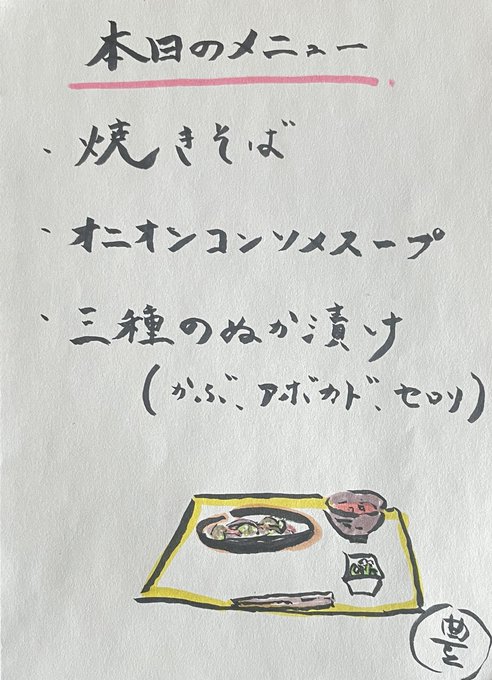 本日のメニュー
・焼きそば
・オニオンコンソメスープ
・三種のぬか漬け
(かぶ、アボカド、セロリ)